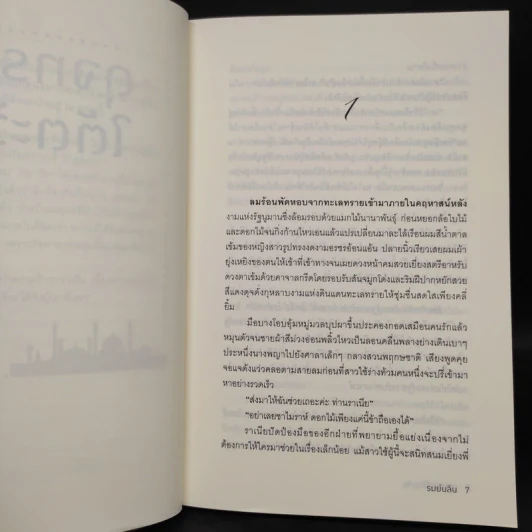 ดุจทร
ใต้ตะวั
1
ลมร้อนพัดหอบจากทะเลทรายเข้ามาภายในคฤหาสน์หลัง
งามแห่งรัฐนูมานซึ่งล้อมรอบด้วยแมกไม้นานาพันธุ์ ก่อนหยอกล้อใบไม้
และดอกไม้จนกิ่งก้านไหวเอนแล้วแปรเปลี่ยนมาละไล้เรือนผมสีน้ำตาล
เข้มของหญิงสาวรูปทรงงดงามอรชรอ้อนแอ้น ปลายนิ้วเรียวเสยผมเผ้า
ยุ่งเหยิงของตนให้เข้าที่เข้าทางจนเผยดวงหน้าคมสวยเยี่ยงสตรีอาหรับ
ดวงตาเข้มด้วยคาจาลกรีดโดยรอบรับสันจมูกโด่งและริมฝีปากหยักสวย
สีแดงดุจดังกุหลาบงามแห่งดินแดนทะเลทรายให้ชุ่มชื่นสดใสเพียงคลี่
ยิ้ม
มือบางโอบอุ้มหมู่มวลบุปผาขึ้นประคองกอดเสมือนคนรักแล้ว
หมุนตัวจนชายผ้าสีม่วงอ่อนพลิ้วไหวเป็นลอนคลื่นพลางย่างเดินเบาๆ
ประหนึ่งนางพญาไปยังศาลาเล็กๆ กลางสวนพฤกษชาติ เสียงพูดคุย
จอแจดังแว่วคลอตามสายลมก่อนที่สาวใช้ร่างท้วมคนหนึ่งจะปรี่เข้ามา
หาอย่างรวดเร็ว
“ส่งมาให้ฉันช่วยเถอะค่ะ ท่านราเนีย”
“อย่าเลยซาไมราห์ ดอกไม้เพียงแค่นี้ข้าถือเองได้”
ราเนียปัดป้องมือของอีกฝ่ายที่พยายามยื้อแย่งเนื่องจากไม่
ต้องการให้ใครมาช่วยในเรื่องเล็กน้อย แม้สาวใช้ผู้นี้จะสนิทสนมเยี่ยงพี่
รมย์นลิน 7